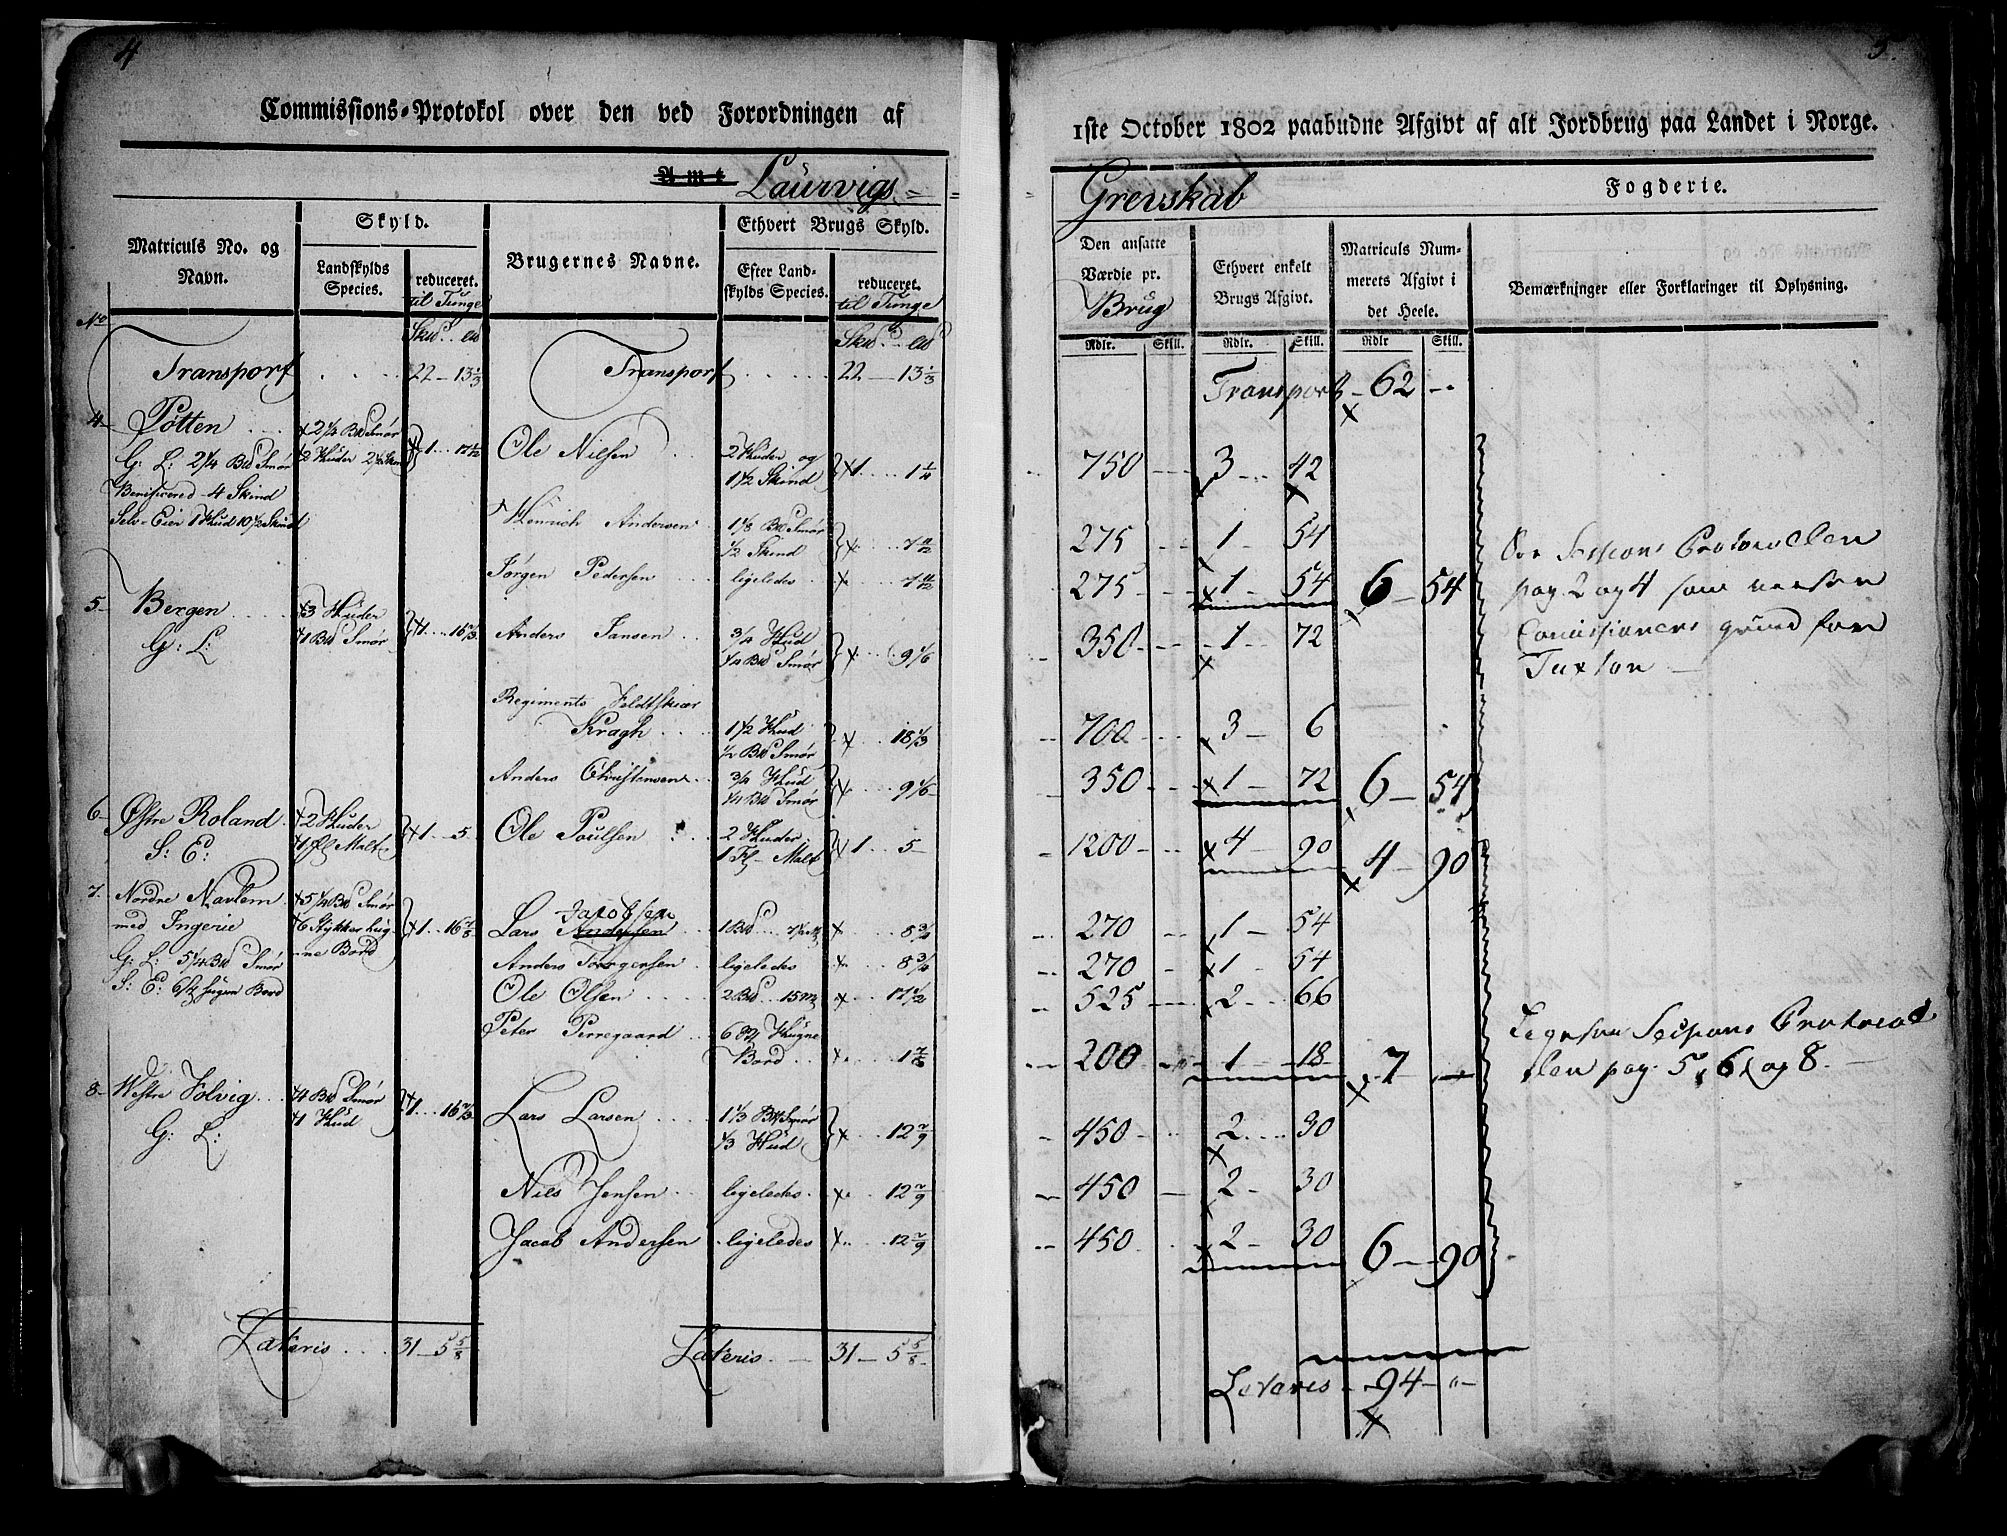 4
Commissions-Protokol over den ved Forordningen af
Amt Laurvigs
Matriculs No. og Navn.
Skyld.
Landskylds Species.
reduceret.
til Tunge
Brugernes Navne.
Ethvert Brugs Skyld.
Efter Landskylds Species.
reduceret.
til Tunge
No
Transport . . . . 22 – 13 1/3 Transport . . . . 22 – 13 1/3
4 – Pøtten . . . 2 1/4 Bd Smør
G: L: 2 1/4 Bd Smør 2 Huder
Ole Nilsen . . . 2 Huder og
1 1/2 Skind 1 . . . 1 1/4
Beneficered 4 Skind
Selv-Eier 1 Hud 10 1/2 Skind
Henrich Andersen 1 1/8 Bd Smør
1/2 Skind
Jørgen Pedersen . . . ligeledes
5 – Bergen . . . 3 Huder
G: L: 1 Bd Smør
Anders Jansen . . . 3/4 Hud
1/4 Bd Smør . . . 9 1/6
Regiments Feldtskiær
Kragh . . . 1 1/2 Hud
1/2 Bd Smør . . . 18 1/3
Anders Christensen . . 3/4 Hud
1/4 Bd Smør . . . 9 1/6
6 – Østre Roland . 2 Huder
S: E: 1 fl Malt 1 . . . 5
Ole Poulsen . . . 2 Huder
1 Fl Malt 1 5 –
7. Nordre Navlem 5 1/4 Bd Smør
med Ingerie 6 Stykker Hug-
ne Bord
G: L: 5 1/4 Bd Smør
S: E: 6 hugen Bord
Jacobsen
Lars Andersen 1 Bd . . . 8 3/4
Anders Torgersen . ligeledes . . . 8 3/4
Ole Olsen . . . . 2 Bd . . 15 . . . 17 1/2
Peter Perregaard . . 6 Hugne
Bord
8 – Westre Holvig . . . 4 Bd Smør
G: L: 1 Hud
Lars Larsen . . . . 1 1/3 Bd Smør
1/3 Hud . . . 12 2/9
Nils Jensen . . . ligeledes . . . 12 2/9
Jacob Andersen . ligeledes . . . 12 2/9
Lateris . . . 31 – 5 5/8 Lateris . – 31 – 5 5/8
5.
1ste October 1802 paabudne Afgivt af alt Jordbrug paa Landet i Norge.
Grevskab Fogderie.
Den ansatte Værdie pr.
Brug
Ethvert enkelt Brugs Afgivt.
Matriculs Nummerets Afgivt i det Heele.
Bemærkninger eller Forklaringer til Oplysning.
Rdlr. Skill. Rdlr. Skill. Rdlr Skill.
Transport – 62 –
750 – 3 – 42
275 – 1 – 54
275 – 1 – 54 6 – 54
350 – 1 – 72
700 – 3 – 6
350 – 1 – 72 6 – 54
1200 – 4 – 90 4 – 90
270 – 1 – 54
270 – 1 – 54
525 – 2 – 66
200 – 1 – 18 7 –
450 – 2 – 30
450 – 2 – 30
450 – 2 – 30 6 – 90
Sessions Protocollen
pag. 2 og 4 som
Comissionens grund for
Taxton –
Sessions Protocol
len pag. 5, 6 og 8 –
Lateris – 94 –